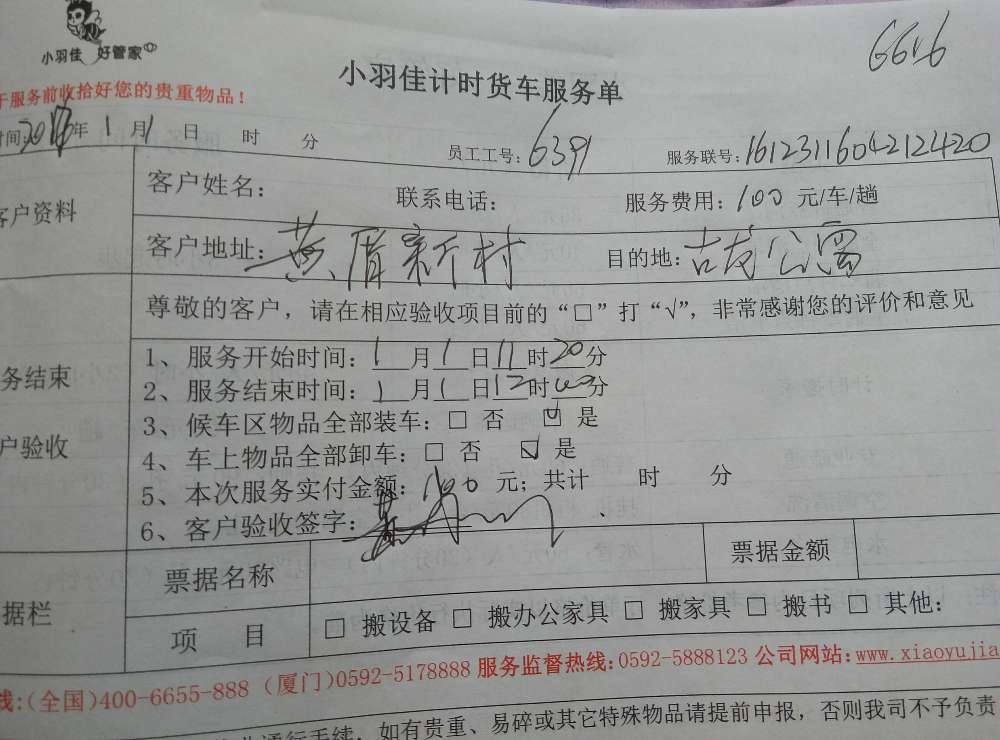 小羽佳 好管家
6616
小羽佳计时货车服务单
于服务前收拾好您的贵重物品！
时间: 年 1 月 1 日 时 分
员工工号: 6391
服务联号: 1612311604212420
客户资料
客户姓名：
联系电话：
服务费用： 100 元/车/趟
客户地址： 黄厝新村
目的地: 古龙公寓
尊敬的客户，请在相应验收项目前的“□”打“√”，非常感谢您的评价和意见
务结束
户验收
1、服务开始时间： 1 月 1 日 11 时 20 分
2、服务结束时间： 1 月 1 日 12 时 00 分
3、候车区物品全部装车：□ 否 ☑ 是
4、车上物品全部卸车：□ 否 ☑ 是
5、本次服务实付金额： 100 元；共计 时 分
6、客户验收签字：
据栏
票据名称
票据金额
项 目
□ 搬设备 □ 搬办公家具 □ 搬家具 □ 搬书 □ 其他：
线：(全国)400-6655-888 (厦门)0592-5178888 服务监督热线：0592-5888123 公司网站：www.xiaoyujia
通行手续，如有贵重、易碎或其它特殊物品请提前申报，否则我司不予负责